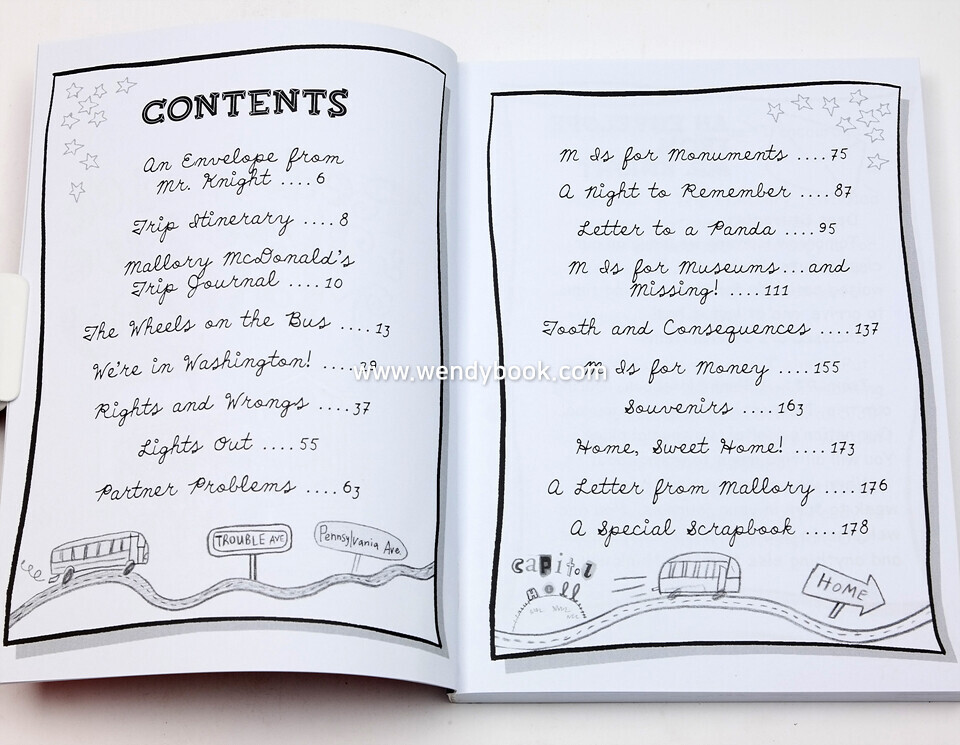 CONTENTS
An Envelope from
Mr. Knight ....6
Trip Itinerary ....8
Mallory McDonald's
Trip Journal ....10
The Wheels on the Bus ....13
We're in Washington! ....
Rights and Wrongs ....37
Lights Out ....55
Partner Problems ....63
TROUBLE AVE
Pennsylvania Ave.
M Is for Monuments ....75
A Night to Remember ....87
Letter to a Panda ....95
M Is for Museums...and
Missing! ....111
Tooth and Consequences ....137
M Is for Money ....155
Souvenirs ....163
Home, Sweet Home! ....173
A Letter from Mallory ....176
A Special Scrapbook ....178
capitol
Hill
HOME
www.wendybook.com